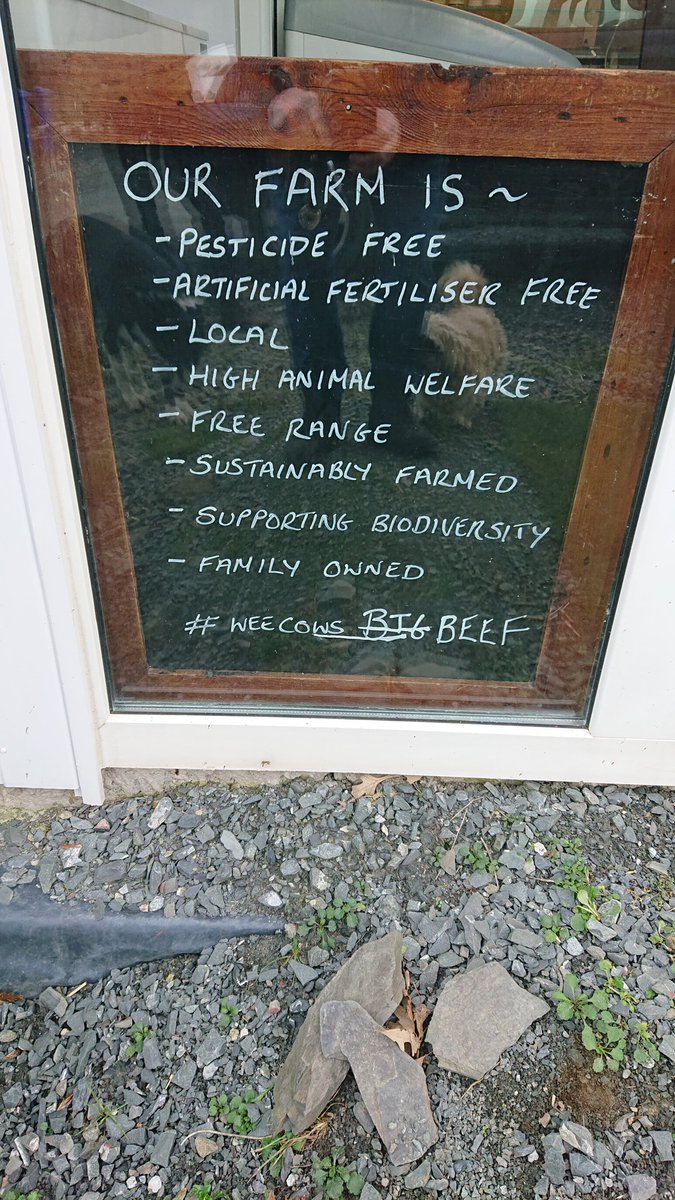 OUR FARM IS ~
- PESTICIDE FREE
- ARTIFICIAL FERTILISER FREE
- LOCAL
- HIGH ANIMAL WELFARE
- FREE RANGE
- SUSTAINABLY FARMED
- SUPPORTING BIODIVERSITY
- FAMILY OWNED
# WEECOWS BIG BEEF